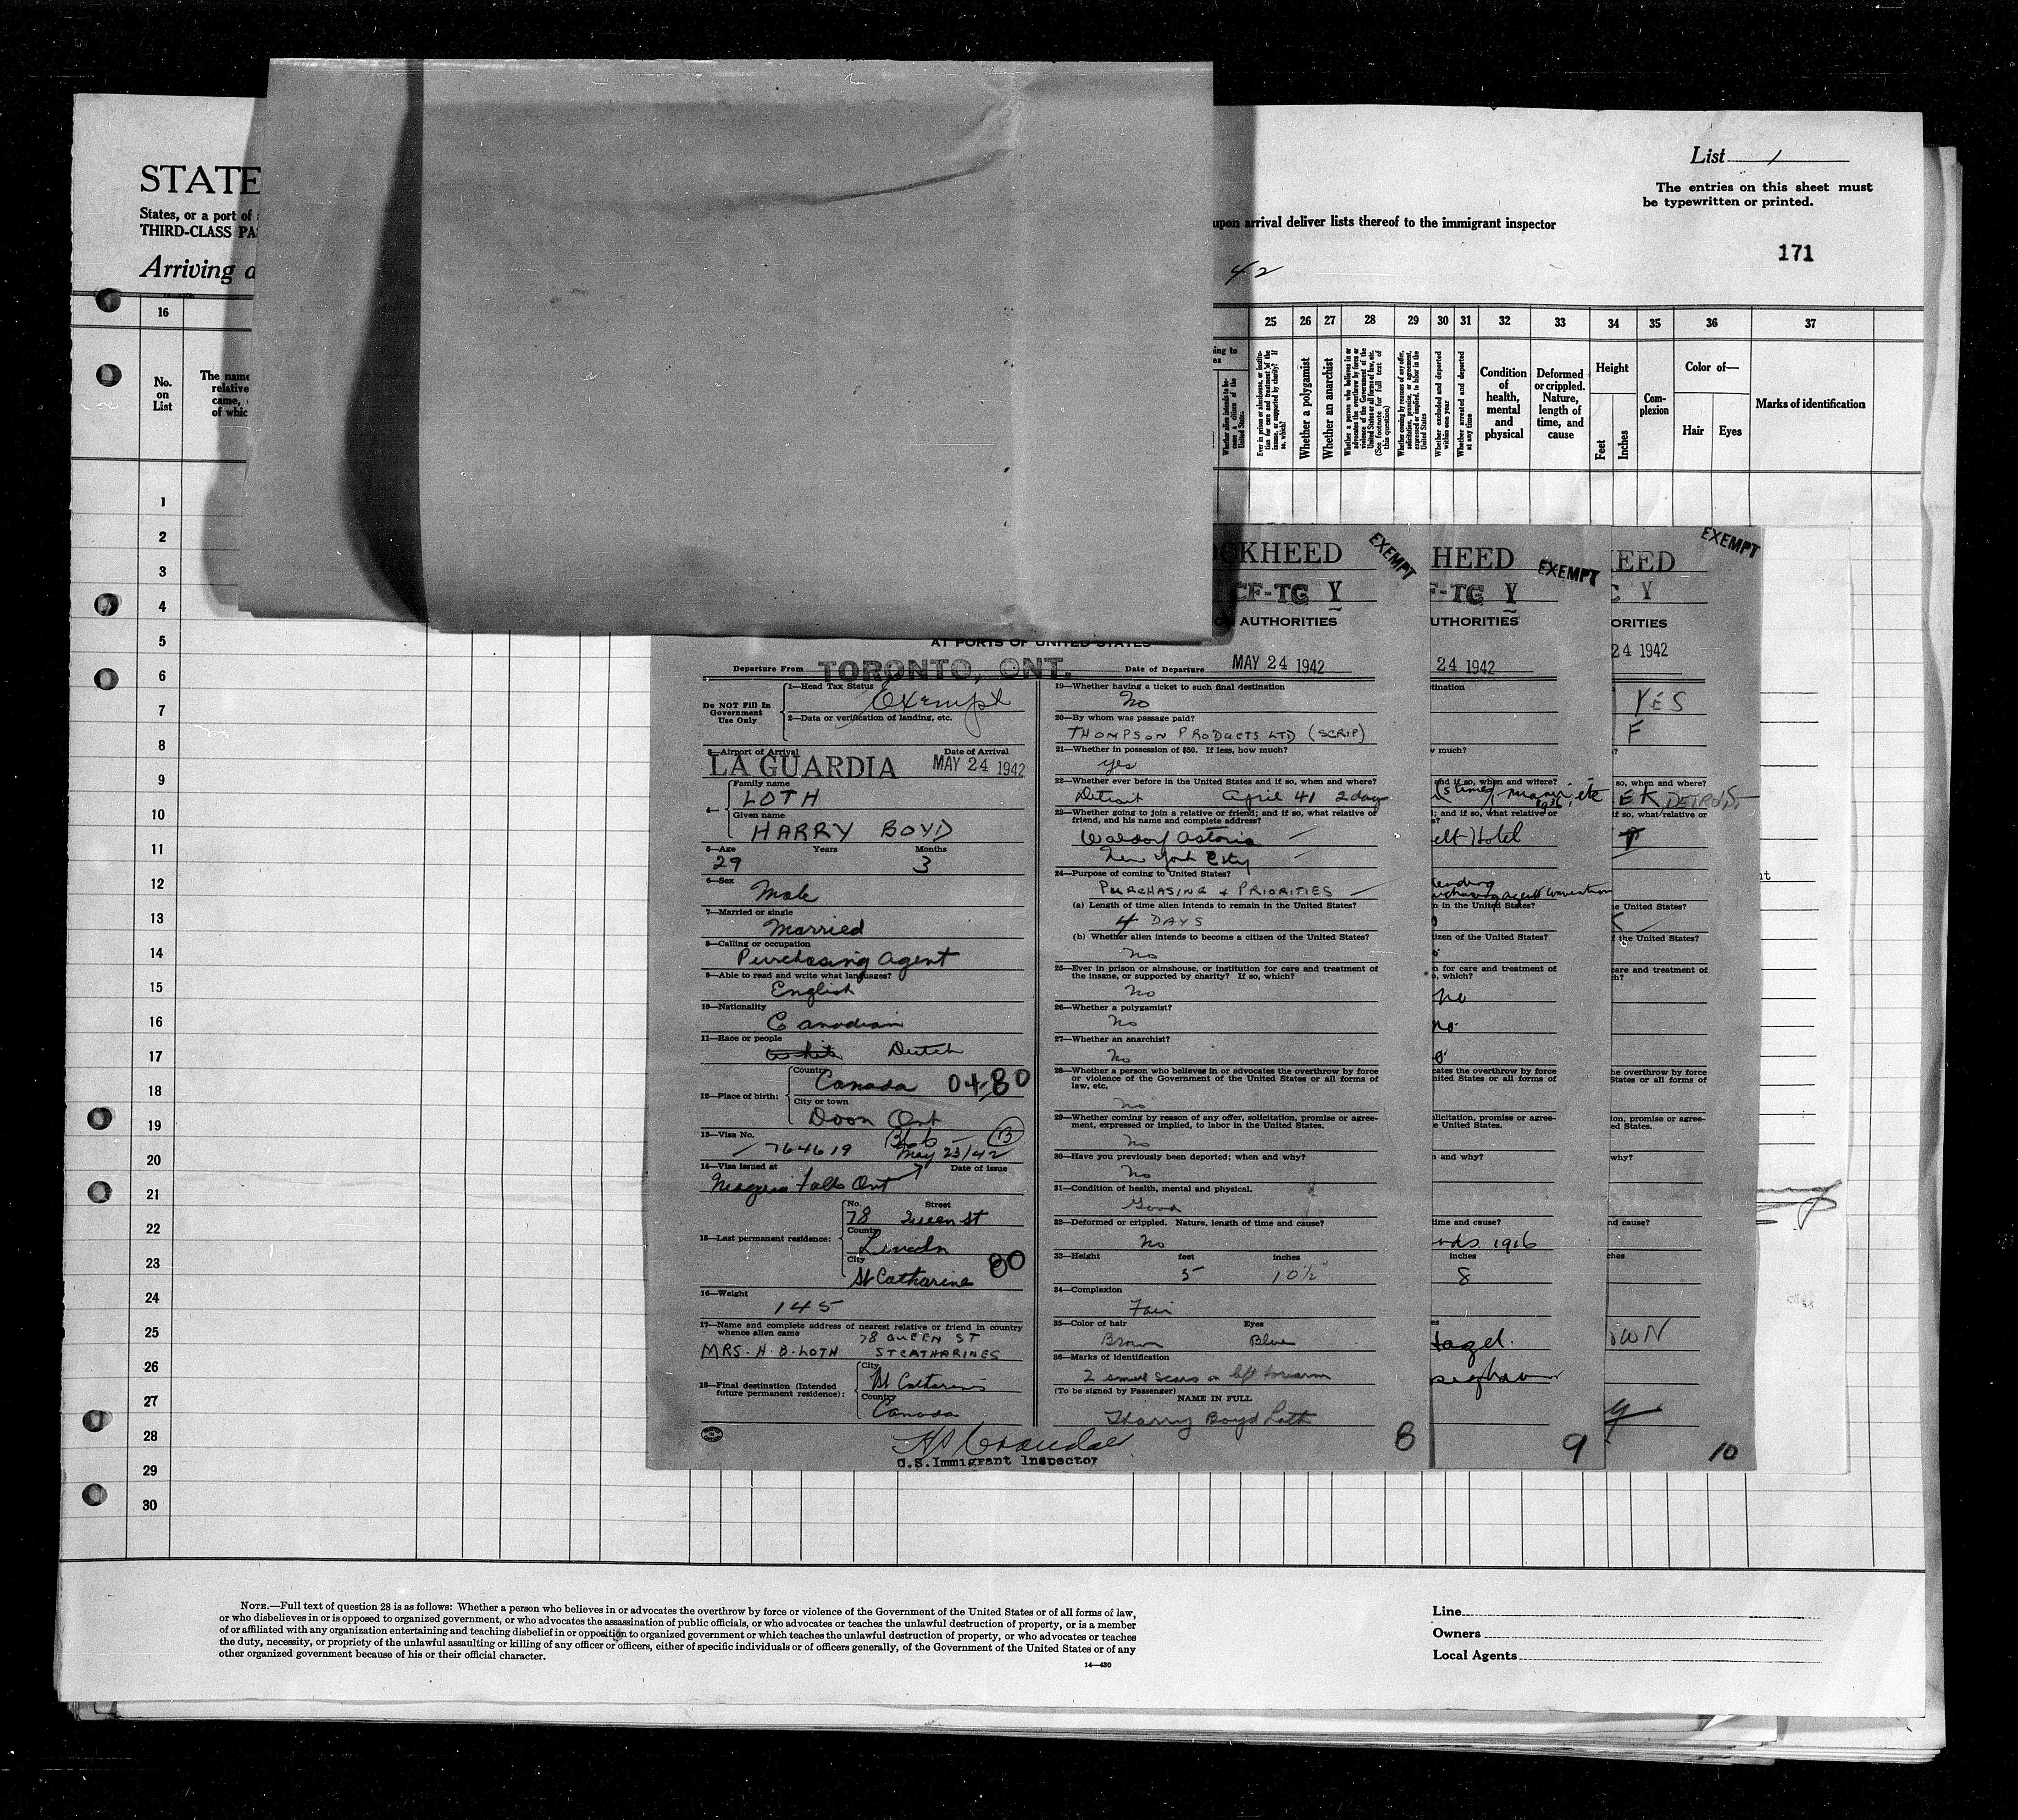 STATE
States, or a port of
THIRD-CLASS PA
Arriving a
List 1
The entries on this sheet must
be typewritten or printed.
upon arrival deliver lists thereof to the immigrant inspector
171
42
16
25 26 27 28 29 30 31 32 33 34 35 36 37
No.
on
List
The name
relative
came,
of whic
Whether alien intends to be-
come a citizen of the
United States.
Whether a polygamist
Whether an anarchist
Whether excluded and deported
within one year
Whether arrested and deported
at any time
Condition
of
health,
mental
and
physical
Deformed
or crippled.
Nature,
length of
time, and
cause
Height
Feet
Inches
Com-
plexion
Color of—
Hair
Eyes
Marks of identification
1
2
3
4
5
6
7
8
9
10
11
12
13
14
15
16
17
18
19
20
21
22
23
24
25
26
27
28
29
30
CKHEED
EXEMPT
CF-TG Y
AUTHORITIES
AT PORTS OF UNITED STATES
Departure From TORONTO, ONT. Date of Departure MAY 24 1942
Do NOT Fill In
Government
Use Only
1—Head Tax Status
Exempt
2—Data or verification of landing, etc.
3—Airport of Arrival Date of Arrival
LA GUARDIA MAY 24 1942
4—
Family name
LOTH
Given name
HARRY BOYD
5—Age Years Months
29 3
6—Sex
Male
7—Married or single
Married
8—Calling or occupation
Purchasing Agent
9—Able to read and write what languages?
English
10—Nationality
Canadian
11—Race or people
White Dutch
12—Place of birth:
Country
Canada 04-80
City or town
Doon Ont
13—Visa No.
764619 May 23/42 B
14—Visa issued at Date of issue
Niagra Falls Ont
15—Last permanent residence:
No. Street
78 Queen St
County
Lincoln
City
St Catharine 80
16—Weight
145
17—Name and complete address of nearest relative or friend in country
whence alien came 78 QUEEN ST
MRS. H. B. LOTH ST CATHARINES
18—Final destination (Intended
future permanent residence):
City
St Catharines
Country
Canada
U.S. Immigrant Inspector
19—Whether having a ticket to such final destination
No
20—By whom was passage paid?
THOMPSON PRODUCTS LTD (SCRIP)
21—Whether in possession of $50. If less, how much?
yes
22—Whether ever before in the United States and if so, when and where?
Detroit April 41 2 days
23—Whether going to join a relative or friend; and if so, what relative or
friend, and his name and complete address?
Waldorf Astoria
New York City
24—Purpose of coming to United States?
PURCHASING & PRIORITIES
(a) Length of time alien intends to remain in the United States?
4 DAYS
(b) Whether alien intends to become a citizen of the United States?
No
25—Ever in prison or almshouse, or institution for care and treatment of
the insane, or supported by charity? If so, which?
No
26—Whether a polygamist?
No
27—Whether an anarchist?
No
28—Whether a person who believes in or advocates the overthrow by force
or violence of the Government of the United States or all forms of
law, etc.
No
29—Whether coming by reason of any offer, solicitation, promise or agree-
ment, expressed or implied, to labor in the United States.
No
30—Have you previously been deported; when and why?
No
31—Condition of health, mental and physical.
Good
32—Deformed or crippled. Nature, length of time and cause?
No
33—Height feet inches
5 10½"
34—Complexion
Fair
35—Color of hair Eyes
Brown Blue
36—Marks of identification
2 small scars on left forearm
(To be signed by Passenger)
NAME IN FULL
Harry Boyd Loth
8
HEED
EXEMPT
F-TG Y
UTHORITIES
24 1942
tination
much?
and if so, when and where?
; and if so, what relative or
Hotel
n in the United States?
tizen of the United States?
n for care and treatment of
, which?
no
no.
cates the overthrow by force
nited States or all forms of
olicitation, promise or agree-
e United States.
n and why?
time and cause?
1916
inches
8
Hazel.
9
EED
EXEMPT
C Y
ORITIES
24 1942
YES
F
so, when and where?
EK, DETROIS.
if so, what relative or
e United States?
f the United States?
care and treatment of
ch?
he overthrow by force
States or all forms of
ion, promise or agree-
ed States.
why?
nd cause?
ches
OWN
10
NOTE.—Full text of question 28 is as follows: Whether a person who believes in or advocates the overthrow by force or violence of the Government of the United States or of all forms of law,
or who disbelieves in or is opposed to organized government, or who advocates the assassination of public officials, or who advocates or teaches the unlawful destruction of property, or is a member
of or affiliated with any organization entertaining and teaching disbelief in or opposition to organized government or which teaches the unlawful destruction of property, or who advocates or teaches
the duty, necessity, or propriety of the unlawful assaulting or killing of any officer or officers, either of specific individuals or of officers generally, of the Government of the United States or of any
other organized government because of his or their official character.
14—430
Line
Owners
Local Agents